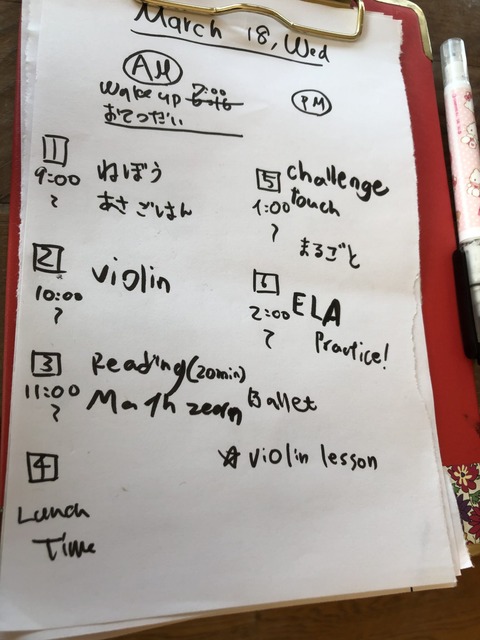 March 18, Wed
AM
Wake up 7:00
おてつだい
1
9:00
~
ねぼう
あさごはん
2
10:00
~
violin
3
11:00
~
Reading (20min)
Math zearn
4
Lunch
Time
PM
5
1:00
~
challenge
touch
まるごと
6
2:00
~
ELA
Practice!
Ballet
☆ violin lesson